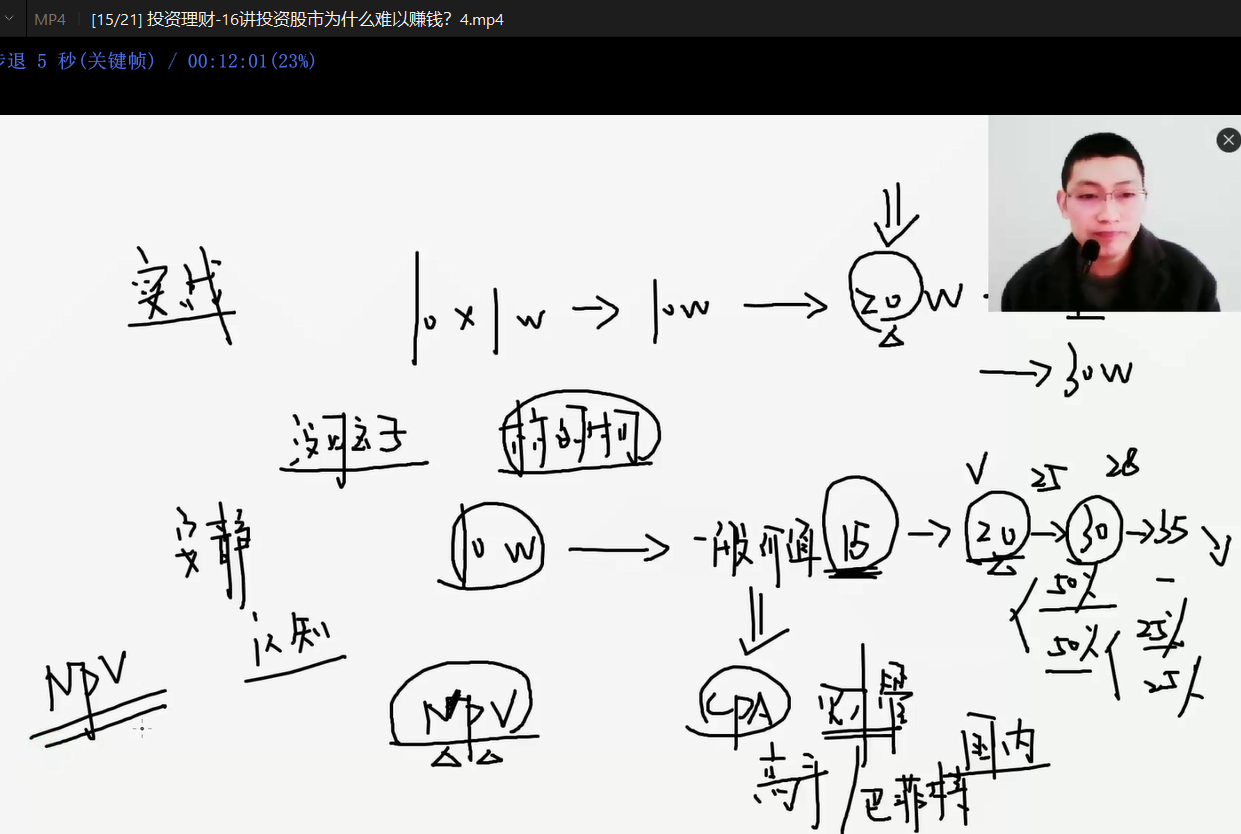 MP4 [15/21] 投资理财-16讲投资股市为什么难以赚钱？4.mp4
步退 5 秒(关键帧) / 00:12:01(23%)
实战 10 x 1w → 10w → 20 w
→ 30w
的时间
安静 10 w → 一般 15 → 20 → 25 30 28 → 35
50%
认知 50% 25%
25%
NPV NPV CPA
高手 / 巴菲特 国内